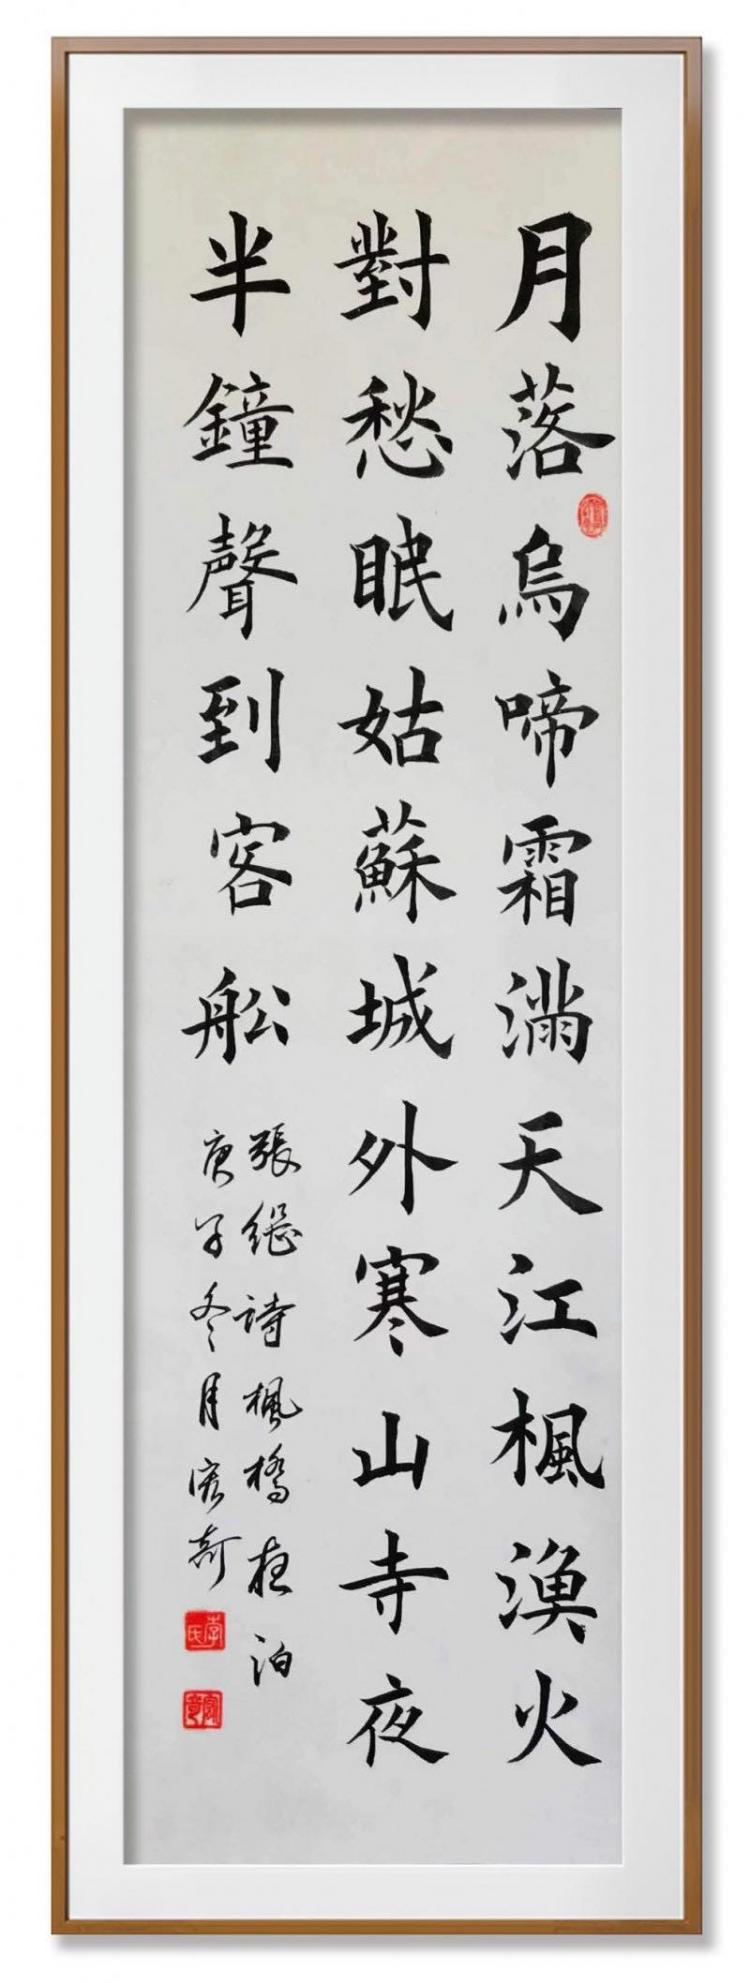 月落烏啼霜滿天江楓漁火
對愁眠姑蘇城外寒山寺夜
半鐘聲到客舩
張继詩楓橋夜泊
庚子冬月宏奇
李氏